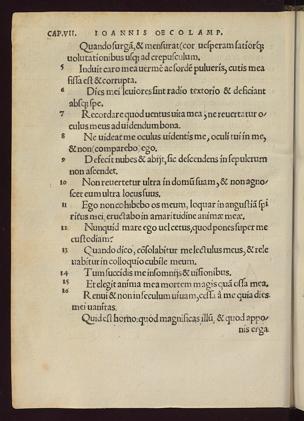 CAP. VII. IOANNIS OECOLAMP.
Quando surgā, & mensurat(cor uesperam satiorq;
uolutationibus usq; ad crepusculum.
5 Induit caro mea uermē ac sordē pulueris, cutis mea
fissa est & corrupta.
6 Dies mei leuiores sunt radio textorio & deficiunt
absq; spe.
7 Recordare quod uentus uita mea, ne reuertatur o-
culus meus ad uidendum bona.
8 Ne uideat me oculus uidentis me, oculi tui in me,
& non(comparebo) ego.
9 Defecit nubes & abijt, sic descendens in sepulcrum
non ascendet.
10 Non reuertetur ultra in domū suam, & non agno-
scet eum ultra locus suus.
11 Ego non cohibebo os meum, loquar in angustiā spi
ritus mei, eructabo in amaritudine animæ meæ.
12 Nunquid mare ego uel cetus, quod pones super me
custodiam?
13 Quando dico, cōsolabitur me lectulus meus, & rele
uabitur in colloquio cubile meum.
14 Tum succidis me insomnijs & uisionibus.
15 Et elegit anima mea mortem magis quā ossa mea.
16 Renui & non in seculum uiuam, cessa à me quia dies
mei uanitas.
Quid est homo: quòd magnificas illū, & quod appo-
nis erga